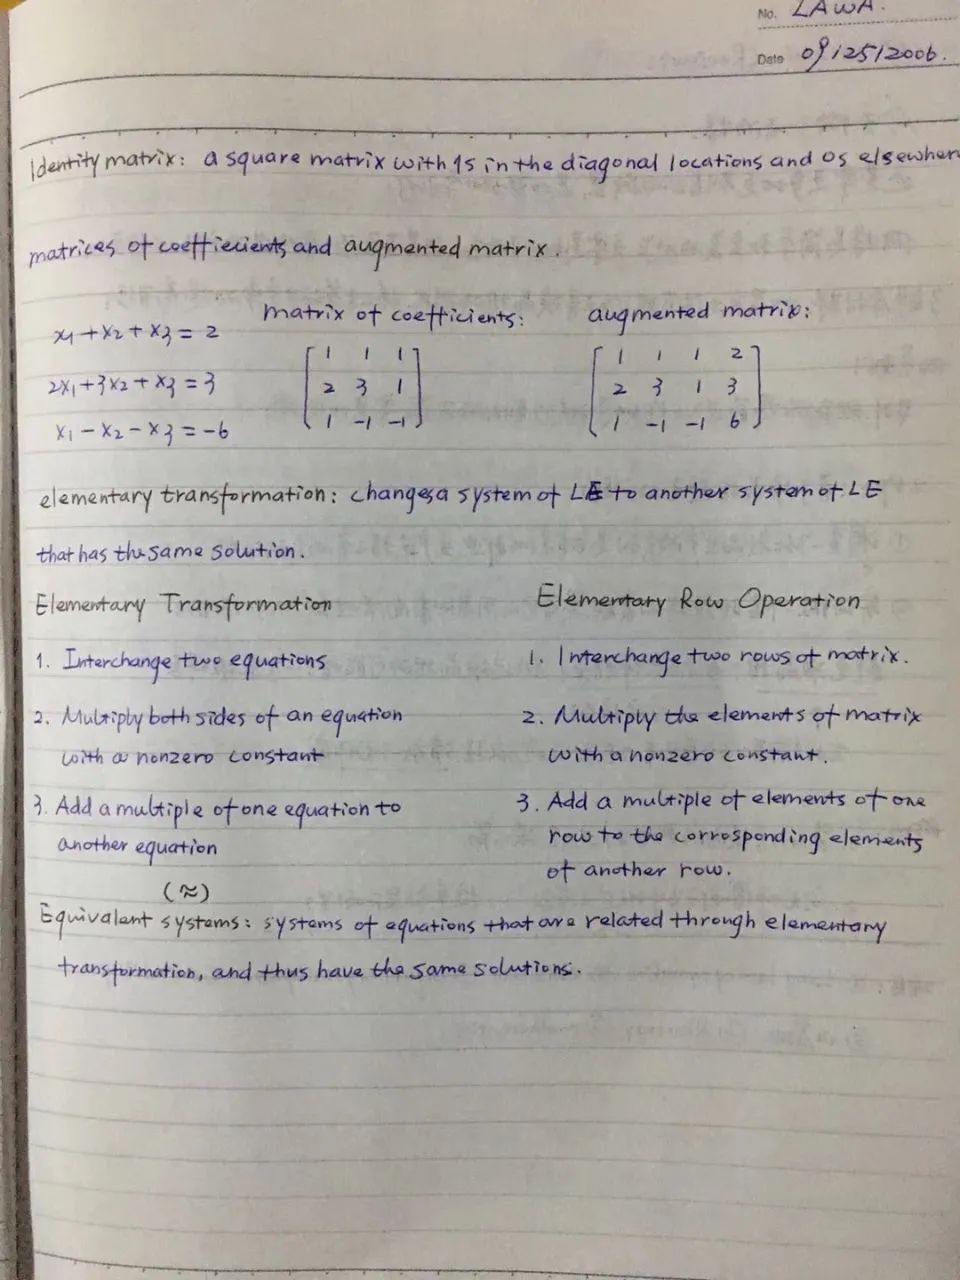 No. LAWA.
Date 09/25/2006.
Identity matrix: a square matrix with 1s in the diagonal locations and 0s elsewhere
matrices of coeffiecients, and augmented matrix.
matrix of coefficients: augmented matrix:
x1 + x2 + x3 = 2
1 1 1
1 1 1 2
2x1 + 3x2 + x3 = 3
2 3 1
2 3 1 3
x1 - x2 - x3 = -6
1 -1 -1
1 -1 -1 6
elementary transformation: changes a system of LE to another system of LE
that has the same solution.
Elementary Transformation
1. Interchange two equations
2. Multiply both sides of an equation
with a nonzero constant
3. Add a multiple of one equation to
another equation
Elementary Row Operation
1. Interchange two rows of matrix.
2. Multiply the elements of matrix
with a nonzero constant.
3. Add a multiple of elements of one
row to the corrosponding elements
of another row.
(≈)
Equivalent systems: systems of equations that are related through elementary
transformation, and thus have the same solutions.